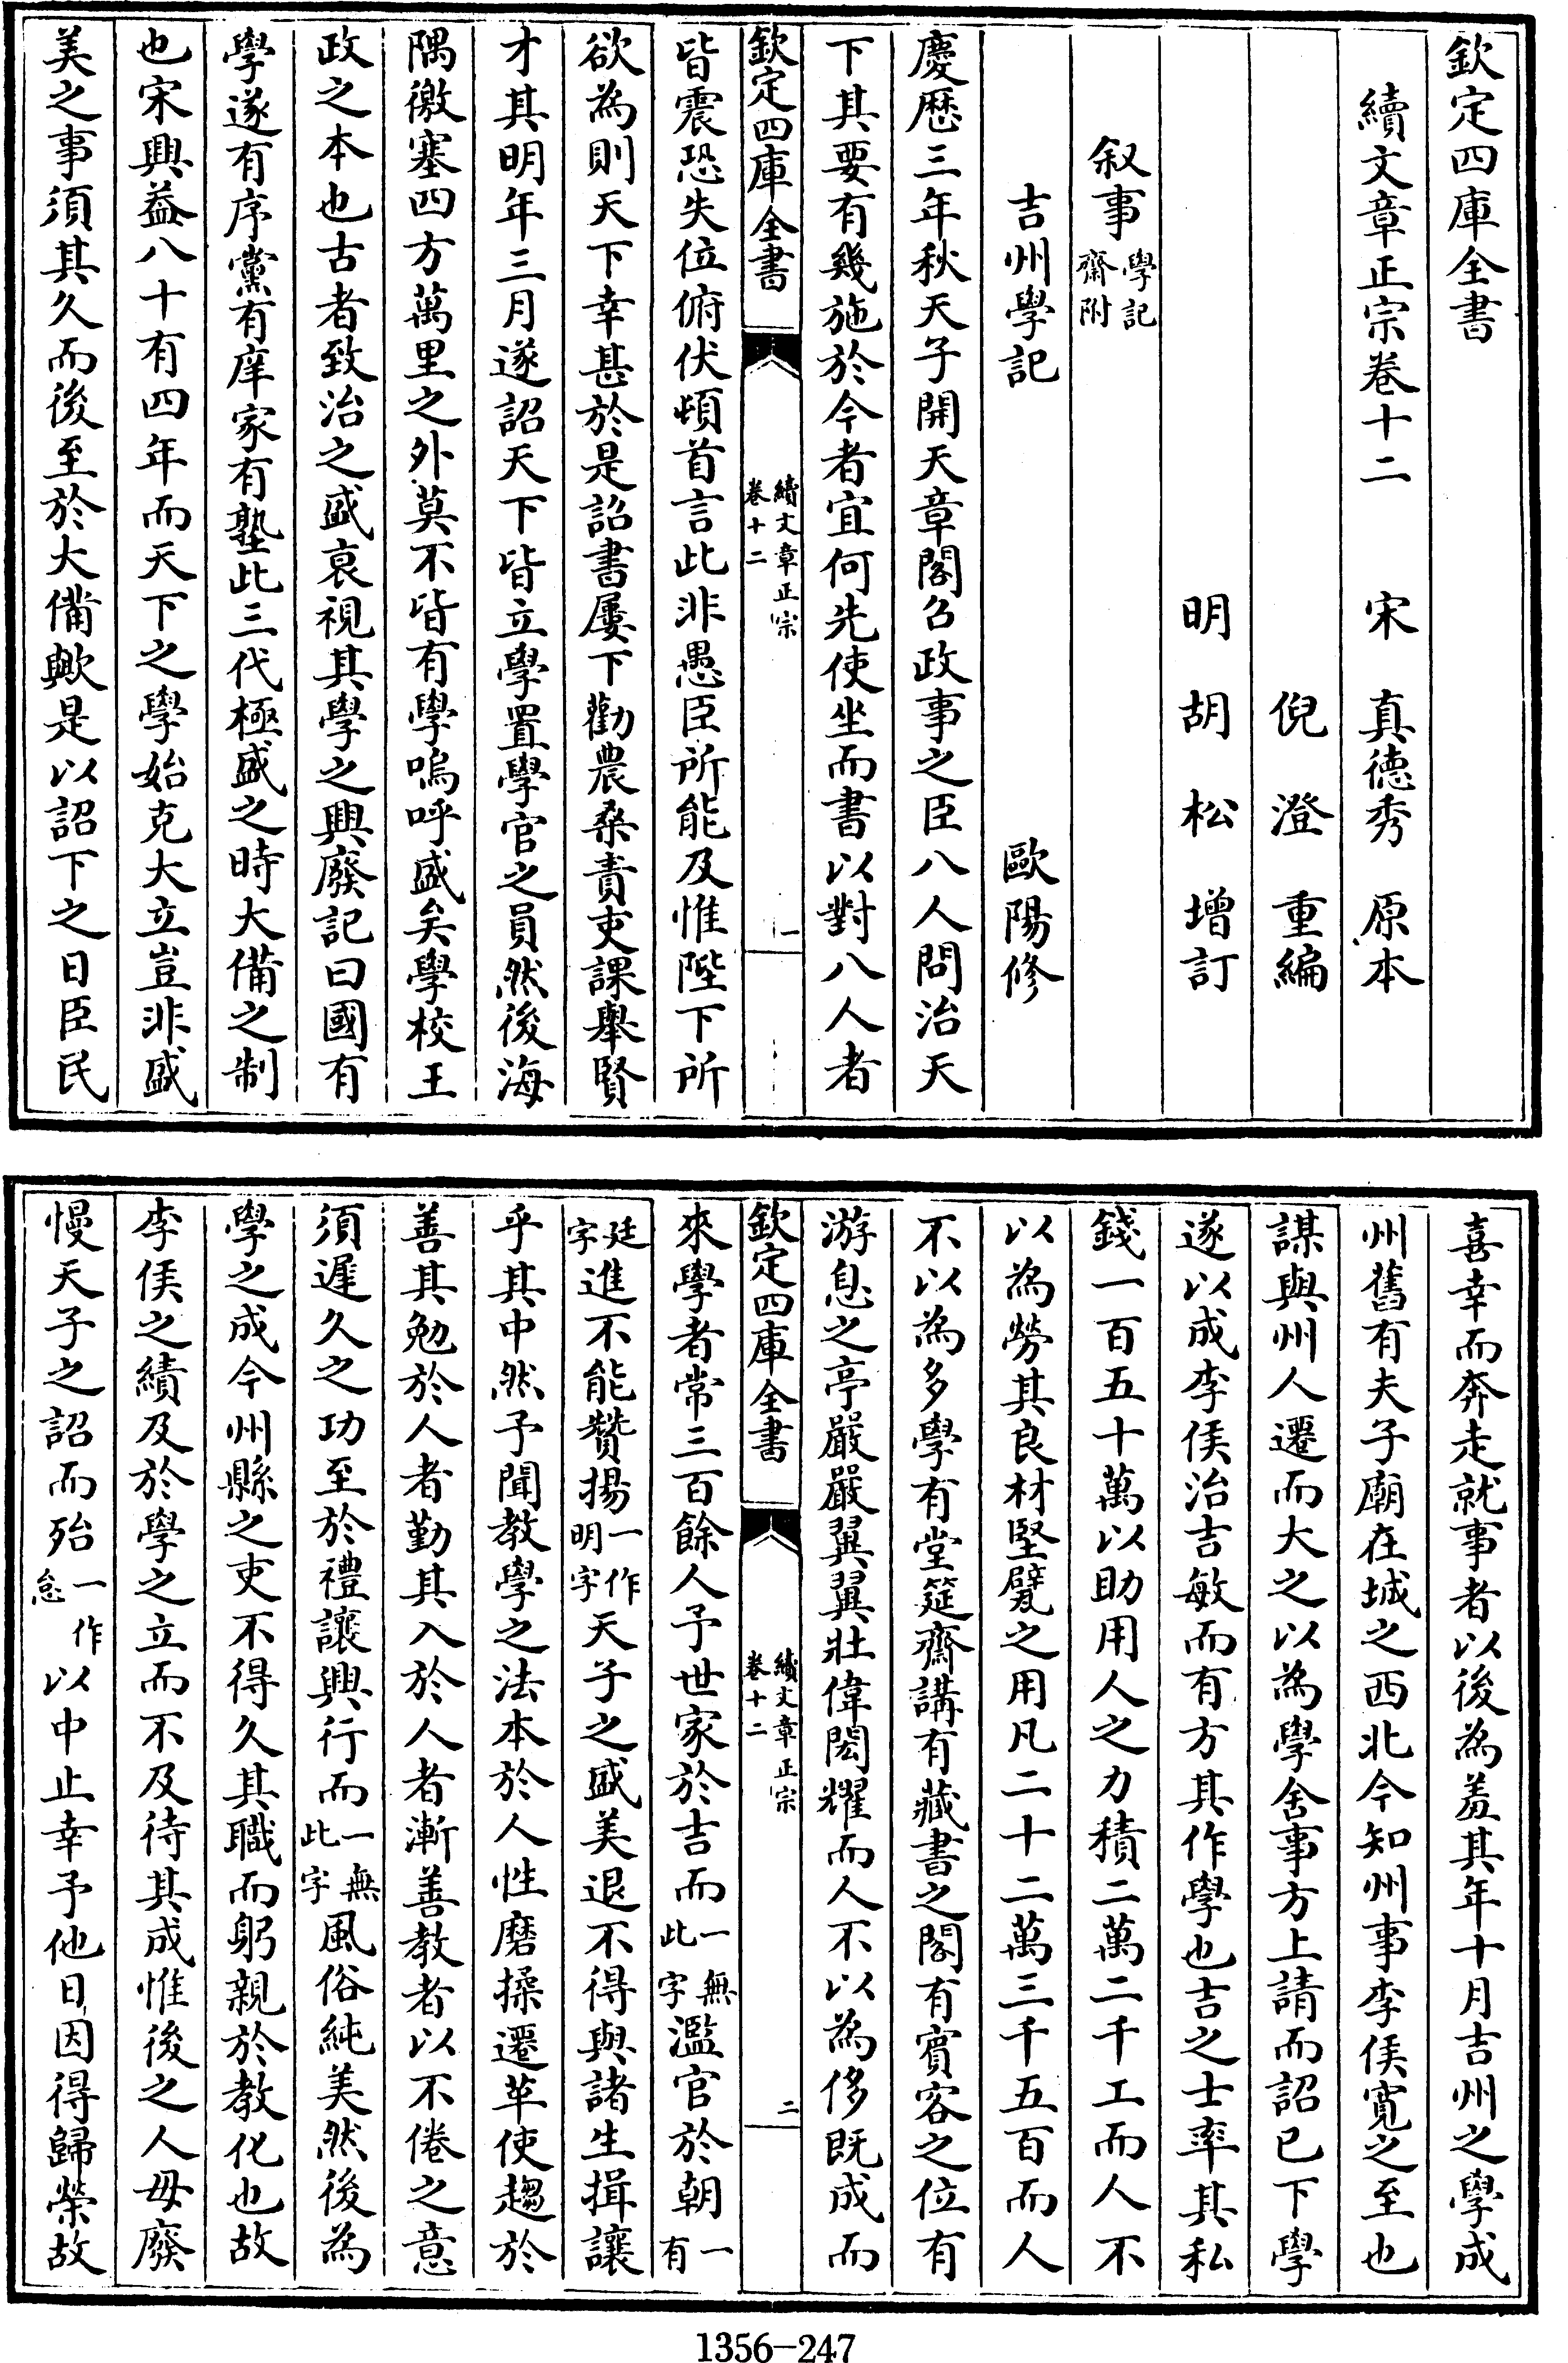 欽定四庫全書
續文章正宗卷十二　宋　真德秀　原本
倪　澄　重編
明　胡　松　增訂
叙事學記齋附
吉州學記　歐陽修
慶歷三年秋天子開天章閣召政事之臣八人問治天
下其要有幾施於今者宜何先使坐而書以對八人者
欽定四庫全書　續文章正宗卷十二　一
皆震恐失位俯伏頓首言此非愚臣所能及惟陛下所
欲為則天下幸甚於是詔書屢下勸農桑責吏課舉賢
才其明年三月遂詔天下皆立學置學官之員然後海
隅徼塞四方萬里之外莫不皆有學嗚呼盛矣學校王
政之本也古者致治之盛衰視其學之興廢記曰國有
學遂有序黨有庠家有塾此三代極盛之時大備之制
也宋興蓋八十有四年而天下之學始克大立豈非盛
美之事須其久而後至於大備歟是以詔下之日臣民
喜幸而奔走就事者以後為羞其年十月吉州之學成
州舊有夫子廟在城之西北今知州事李侯寬之至也
謀與州人遷而大之以為學舍事方上請而詔已下學
遂以成李侯治吉敏而有方其作學也吉之士率其私
錢一百五十萬以助用人之力積二萬二千工而人不
以為勞其良材堅甓之用凡二十二萬三千五百而人
不以為多學有堂筵齋講有藏書之閣有賓客之位有
游息之亭嚴嚴翼翼壯偉閎耀而人不以為侈既成而
欽定四庫全書　續文章正宗卷十二　二
來學者常三百餘人予世家於吉而一無此字濫官於朝一有
廷字進不能贊揚一作明字天子之盛美退不得與諸生揖讓
乎其中然予聞教學之法本於人性磨揉遷革使趨於
善其勉於人者勤其入於人者漸善教者以不倦之意
須遲久之功至於禮讓興行而一無此字風俗純美然後為
學之成今州縣之吏不得久其職而躬親於教化也故
李侯之績及於學之立而不及待其成惟後之人毋廢
慢天子之詔而殆一作怠以中止幸予他日因得歸榮故
1356-247